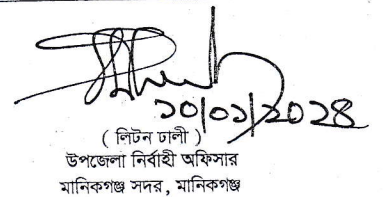 ১০/০১/২০২৪
( লিটন ঢালী )
উপজেলা নির্বাহী অফিসার
মানিকগঞ্জ সদর, মানিকগঞ্জ